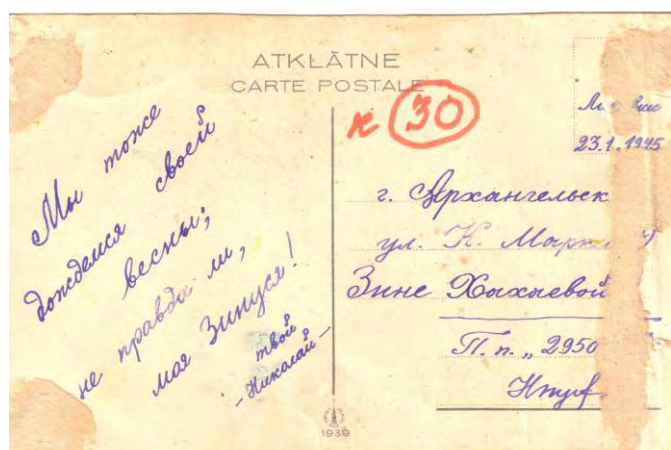 ATKLĀTNE
CARTE POSTALE
к 30
23.1.1945
Мы тоже
дождемся своей
весны;
не правда ли,
моя Зинуся!
твой
- Николай -
г. Архангельск
ул. К.
Зине Хахаевой
П. п. „ 2950
1939